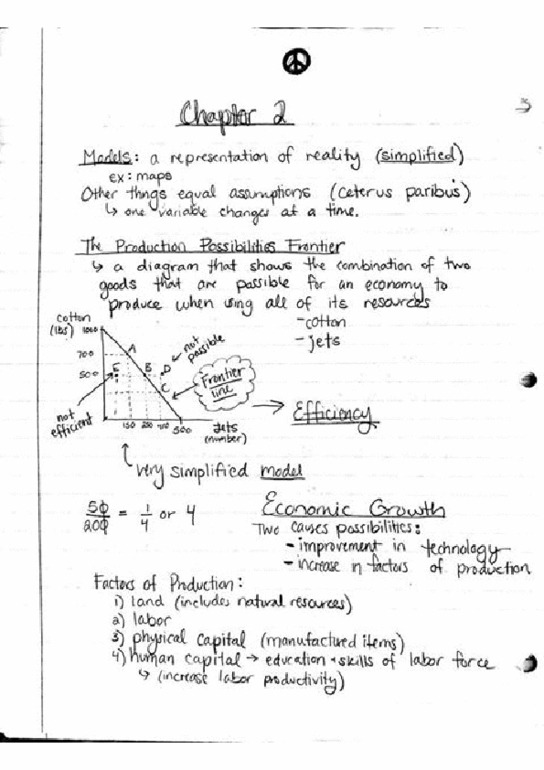 Chapter 2
Models: a representation of reality (simplified)
ex: maps
Other things equal assumptions (ceterus paribus)
↳ one variable changes at a time.
The Production Possibilities Frontier
↳ a diagram that shows the combination of two
goods that are possible for an economy to
produce when using all of its resources
-cotton
-jets
cotton
(lbs)
1000
700
500
A
E
B
D
C
not
possible
Frontier
line
not
efficient
150 250
500
Jets
(number)
→ Efficiency
very simplified model
50/200 = 1/4 or 4
Economic Growth
Two causes possibilities:
- improvement in technology
- increase in factors of production
Factors of Production:
1) land (includes natural resources)
2) labor
3) physical capital (manufactured items)
4) human capital → education + skills of labor force
↳ (increase labor productivity)